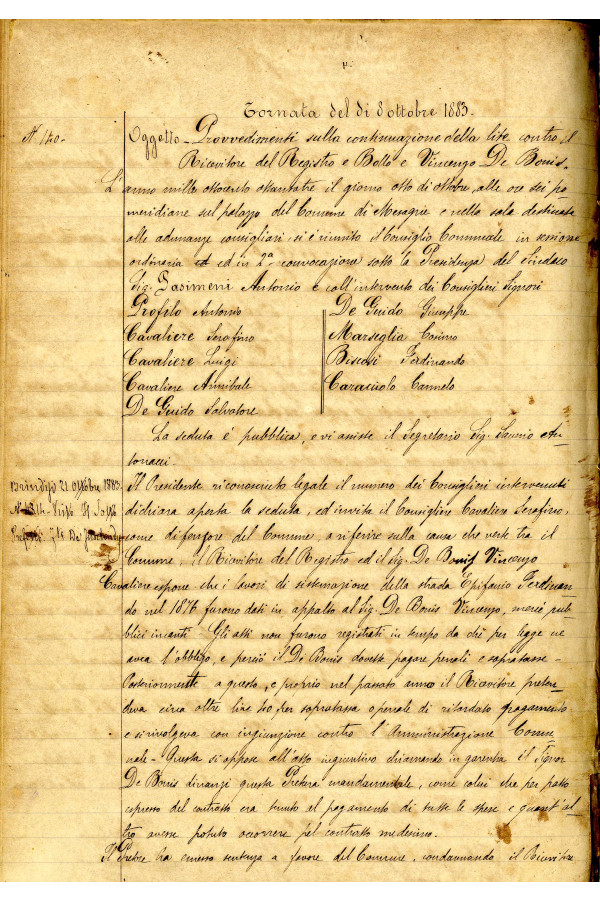 Tornata del dì 8 ottobre 1883.
N. 140.
Oggetto. Provvedimenti sulla continuazione della lite contro il
Ricevitore del Registro e Bollo e Vincenzo De Bonis.
L'anno mille ottocento ottantatre il giorno otto di ottobre, alle ore sei po
meridiane sul palazzo del Comune di Mesagne e nella sala destinata
alle adunanze consigliari, si è riunito il Consiglio Comunale in sessione
ordinaria ed ed in 2ª convocazione sotto la Presidenza del Sindaco
Sig. Pasimeni Antonio e coll'intervento dei Consiglieri Signori
Profilo Antonio
Cavaliere Serafino
Cavaliere Luigi
Cavaliere Annibale
De Guido Salvatore
De Guido Giuseppe
Marseglia Cosimo
Biscosi Ferdinando
Caraciulo Carmelo
La seduta è pubblica, e vi assiste il Segretario Sig. Saverio An-
tonacci.
Brindisi 21 ottobre 1883.
Il Presidente riconosciuto legale il numero dei Consiglieri intervenuti
dichiara aperta la seduta, ed invita il Consigliere Cavaliere Serafino,
come difensore del Comune, a riferire sulla causa che verte tra il
Comune, il Ricevitore del Registro ed il Sig. De Bonis Vincenzo
Cavaliere espone che i lavori di sistemazione della strada Epifanio Ferdinan
do nel 1876 furono dati in appalto al Sig. De Bonis Vincenzo, mercè pub
blici incanti. Gli atti non furono registrati in tempo da chi per legge ne
avea l'obbligo, e perciò il De Bonis dovette pagare penali e sopratasse.
Posteriormente a questo, e proprio nel passato anno il Ricevitore preten
deva circa altre lire 40, per sopratassa o penale di ritardato pagamento
e si rivolgeva con ingiunzione contro l'Amministrazione Comu
nale. Questa si oppose all'atto ingiuntivo chiamando in garentia il Signor
De Bonis dinanzi questa Pretura mandamentale, come colui che per patto
espresso del contratto era tenuto al pagamento di tutte le spese e quant'al
tro avesse potuto occorrere pel contratto medesimo.
Il Pretore ha emesso sentenza a favore del Comune, condannando il Ricevitore